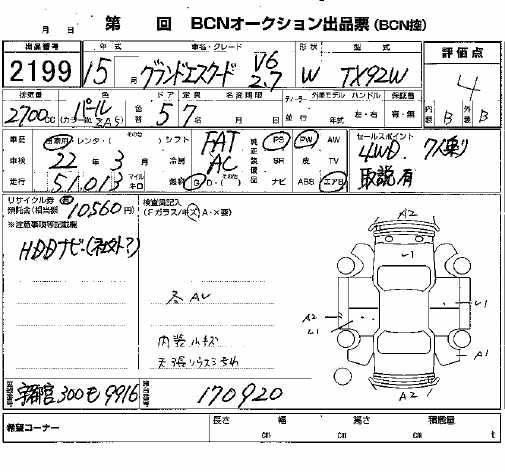 月 日 第 回 BCNオークション出品票(BCN控)
出品番号 年式 車名・グレード 形状 型式 評価点
2199 15 月 グランドエスクード V6 2.7 W TX92W 4
排気量 色 ドア 定員 名変期限 ディーラー 外車モデル ハンドル 保証書
2700cc パール (カラーNo. ZA5) 色替 5 7 並行 年 左・右 有・無 内装 B 外装 B
車歴 自家用・レンタ・(その他) シフト FAT 純正装備品 PS PW AW セールスポイント
車検 22年 3月 冷房 AC SR 革 TV 4WD 7人乗り
走行 51,013 マイル キロ 燃料 G・D・(その他) ナビ ABS エアB 取説有
リサイクル券 預託金(相当額) 有 10560円 検査員記入
※注意事項等記載欄 (Fガラス/キズ・A・×要)
HDDナビ(社外?)
A2
U1
冬AW
A2 U1 U1
内装小キズ
A1
A2
登録番号 宇都宮 300 モ 9916 車台番号 170920
希望コーナー 長さ cm 幅 cm 高さ cm 積載量 t